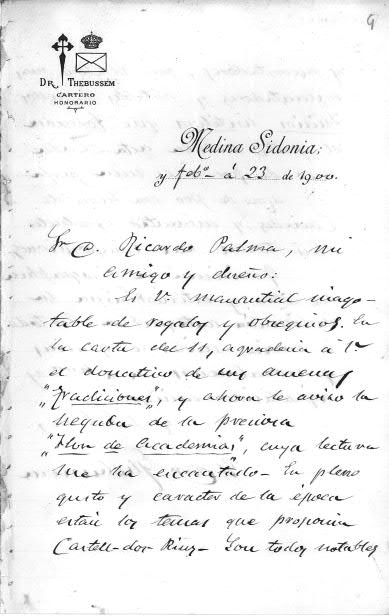 9
DR. THEBUSSEM
CARTERO
HONORARIO
Medina Sidonia:
y febº á 23 de 1900.
Sr D. Ricardo Palma, mi
amigo y dueño:
Es V. manantial inago-
table de regalos y obsequios. En
la carta del 11, agradecia á V.
el donativo de sus amenas
"Tradiciones", y ahora le aviso la
llegada de la preciosa
"Flor de Academias", cuya lectura
me ha encantado— En pleno
gusto y caracter de la época
están los temas que proponia
Castell-dos Rius— Son todos notables